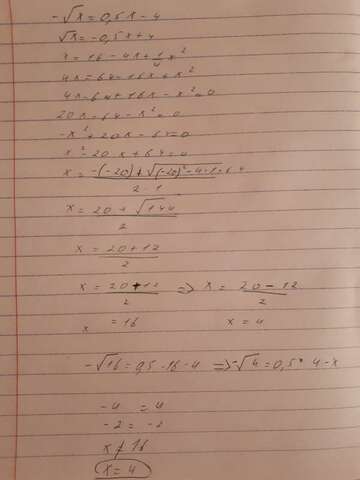 -√x = 0,5x - 4
√x = -0,5x + 4
x = 16 - 4x + 1/4 x²
4x = 64 - 16x + x²
4x - 64 + 16x - x² = 0
20x - 64 - x² = 0
-x² + 20x - 64 = 0
x² - 20x + 64 = 0
x = (-(-20) + √((-20)² - 4 · 1 · 64)) / (2 · 1)
x = (20 + √144) / 2
x = (20 + 12) / 2
x = (20 + 12) / 2 => x = (20 - 12) / 2
x = 16 x = 4
-√16 = 0,5 · 16 - 4 => -√4 = 0,5 · 4 - x
-4 = 4
-2 = -2
x ≠ 16
x = 4